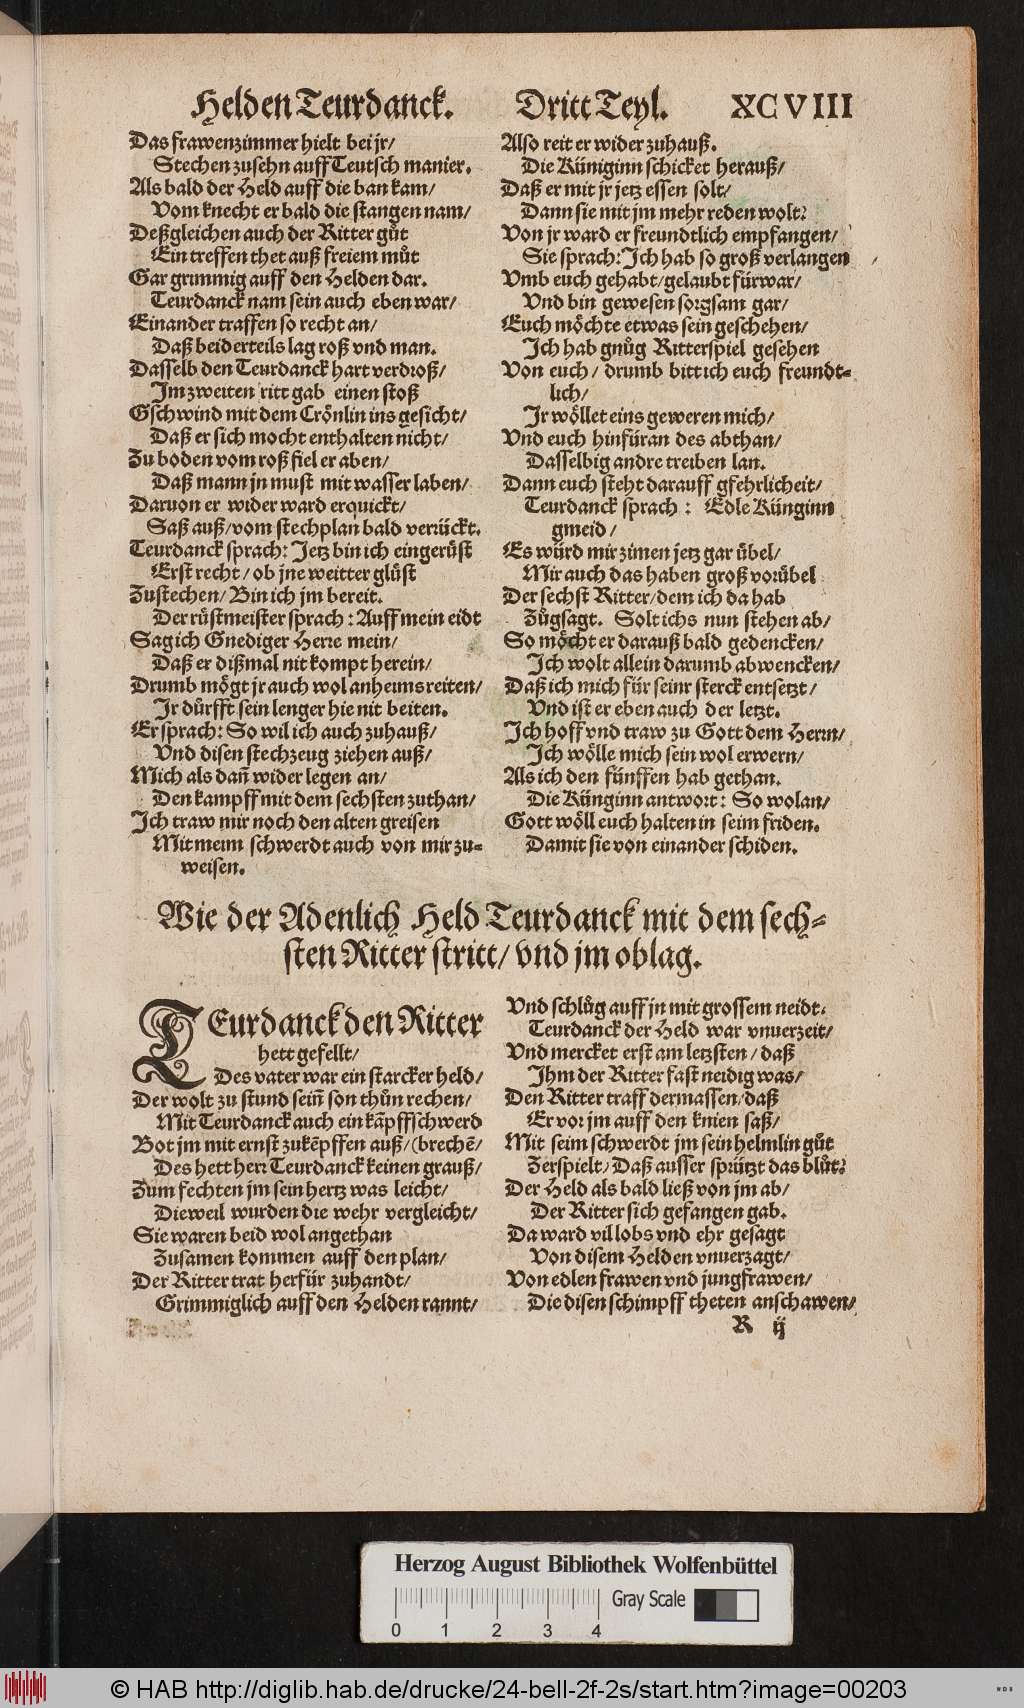 Helden Teurdanck. Dritt Teyl. XCVIII
Das frawenzimmer hielt bei jr/
Stechen zusehn auff Teutsch manier.
Als bald der Held auff die ban kam/
Vom knecht er bald die stangen nam/
Deßgleichen auch der Ritter gůt
Ein treffen thet auß freiem můt
Gar grimmig auff den Helden dar.
Teurdanck nam sein auch eben war/
Einander traffen so recht an/
Daß beiderteils lag roß vnd man.
Dasselb den Teurdanck hart verdroß/
Im zweiten ritt gab einen stoß
Gschwind mit dem Crönlin ins gesicht/
Daß er sich mocht enthalten nicht/
Zu boden vom roß fiel er aben/
Daß mann jn must mit wasser laben/
Daruon er wider ward erquickt/
Saß auß/vom stechplan bald verrückt.
Teurdanck sprach: Jetz bin ich eingerüst
Erst recht/ ob jne weitter glüst
Zustechen/ Bin ich jm bereit.
Der rüstmeister sprach: Auff mein eidt
Sag ich Gnediger Herre mein/
Daß er dißmal nit kompt herein/
Drumb mögt jr auch wol anheims reiten/
Ir dürfft sein lenger hie nit beiten.
Er sprach: So wil ich auch zuhauß/
Vnd disen stechzeug ziehen auß/
Mich als dañ wider legen an/
Den kampff mit dem sechsten zuthan/
Ich traw mir noch den alten greisen
Mit meim schwerdt auch von mir zu=
weisen.
Also reit er wider zuhauß.
Die Küniginn schicket herauß/
Daß er mit jr jetz essen solt/
Dann sie mit jm mehr reden wolt:
Von jr ward er freundtlich empfangen/
Sie sprach: Ich hab so groß verlangen
Vmb euch gehabt/gelaubt fürwar/
Vnd bin gewesen sorgsam gar/
Euch möchte etwas sein geschehen/
Ich hab gnůg Ritterspiel gesehen
Von euch/ drumb bitt ich euch freundt=
lich/
Ir wöllet eins geweren mich/
Vnd euch hinfüran des abthan/
Dasselbig andre treiben lan.
Dann euch steht darauff gfehrlicheit/
Teurdanck sprach: Edle Künginn
gmeid/
Es würd mir zimen jetz gar übel/
Mir auch das haben groß vorübel
Der sechst Ritter/dem ich da hab
Zůgsagt. Solt ichs nun stehen ab/
So möcht er darauß bald gedencken/
Ich wolt allein darumb abwencken/
Daß ich mich für seinr sterck entsetzt/
Vnd ist er eben auch der letzt.
Ich hoff vnd traw zu Gott dem Herrn/
Ich wölle mich sein wol erwern/
Als ich den fünffen hab gethan.
Die Künginn antwort: So wolan/
Gott wöll euch halten in seim friden.
Damit sie von einander schiden.
Wie der Adenlich Held Teurdanck mit dem sech=
sten Ritter stritt/ vnd jm oblag.
TEurdanck den Ritter
hett gefellt/
Des vater war ein starcker held/
Der wolt zu stund seiñ son thůn rechen/
Mit Teurdanck auch ein kãpffschwerd
Bot jm mit ernst zukẽpffen auß/ (brechẽ/
Des hett herr Teurdanck keinen grauß/
Zum fechten jm sein hertz was leicht/
Dieweil wurden die wehr vergleicht/
Sie waren beid wol angethan
Zusamen kommen auff den plan/
Der Ritter trat herfür zuhandt/
Grimmiglich auff den Helden rannt/
Vnd schlůg auff jn mit grossem neidt:
Teurdanck der Held war vnuerzeit/
Vnd mercket erst am letzsten/ daß
Ihm der Ritter fast neidig was/
Den Ritter traff dermassen/daß
Er vor jm auff den knien saß/
Mit seim schwerdt jm sein helmlin gůt
Zerspielt/ Daß ausser sprützt das blůt:
Der Held als bald ließ von jm ab/
Der Ritter sich gefangen gab.
Da ward vil lobs vnd ehr gesagt
Von disem Helden vnuerzagt/
Von edlen frawen vnd jungfrawen/
Die disen schimpff theten anschawen/
R ij
Herzog August Bibliothek Wolfenbüttel
Gray Scale
0 1 2 3 4
© HAB http://diglib.hab.de/drucke/24-bell-2f-2s/start.htm?image=00203